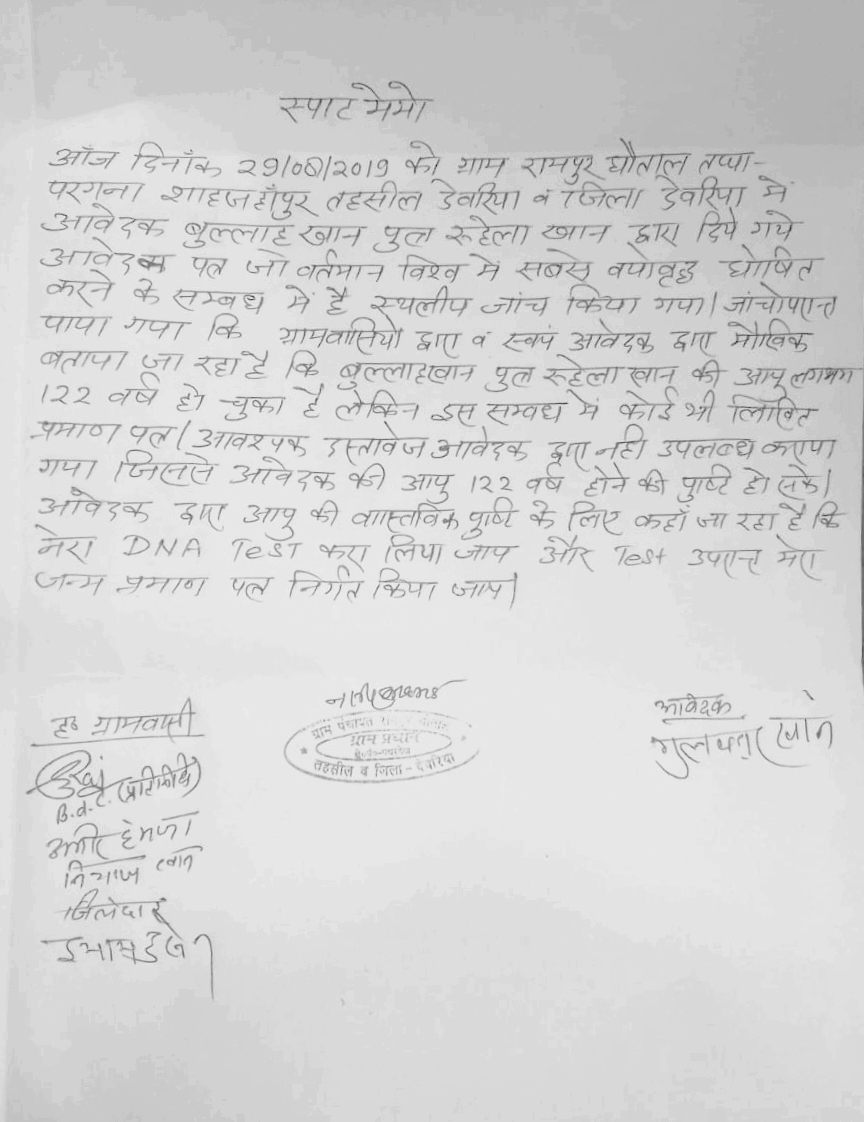 स्पाट मेमो
आँज दिनाँक 29/08/2019 को ग्राम रामपुर घौताल तप्पा-
परगना शाहजहाँपुर तहसील देवरिया व जिला देवरिया में
आवेदक बुल्लाह खान पुत्र रुहेला खान द्वारा दिये गये
आवेदक पत्र जो वर्तमान विश्व में सबसे वयोवृद्ध घोषित
करने के सम्बध में है स्थलीय जांच किया गया। जांचोपरान्त
पाया गया कि ग्रामवासियो द्वारा व स्वयं आवेदक द्वारा मौखिक
बताया जा रहा है कि बुल्लाहखान पुत्र रुहेला खान की आयु लगभग
122 वर्ष हो चुका है लेकिन इस सम्वध में कोई भी लिखित
प्रमाण पत्र/आवश्यक दस्तावेज आवेदक द्वारा नही उपलब्ध कराया
गया जिससे आवेदक की आयु 122 वर्ष होने की पुष्टि हो सके।
आवेदक द्वारा आयु की वास्तविक पुष्टि के लिए कहाँ जा रहा है कि
मेरा DNA Test करा लिया जाय और Test उपरान्त मेरा
जन्म प्रमाण पत्र निर्गत किया जाय।
ह० ग्रामवासी
B.d.C. (प्रतिनिधि)
अमीर हमजा
नियाज खान
जिलेदार
ग्राम पंचायत
ग्राम प्रधान
तहसील व जिला-देवरिया
आवेदक
खान